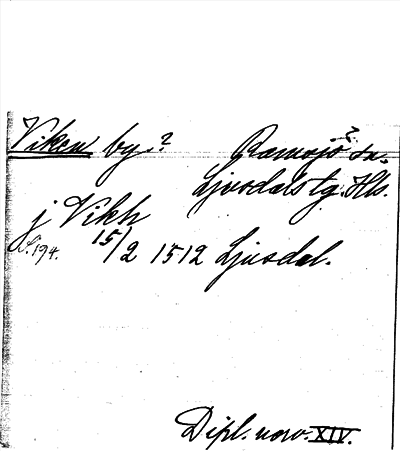 Viken by? Ramsjö? sn.
Ljusdals tg. Hls.
j Vikh
S. 194. 15/2 1512 Ljusdal.
Dipl. norv. XIV.